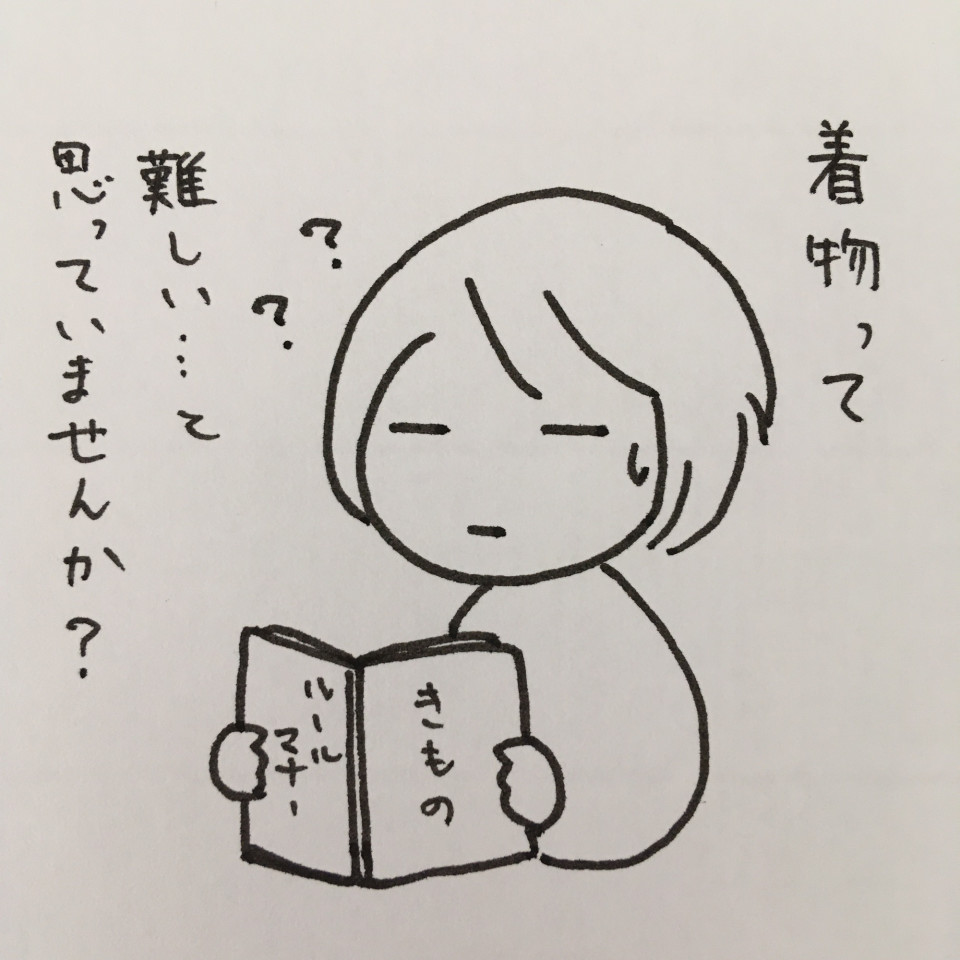 着物って
難しい…と
思っていませんか?
?
?
きもの
ルール
マナー